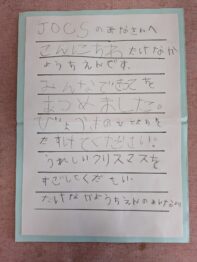 JOCSのみなさんへ
こんにちわ たけなか
ようちえんです。
みんなできてを
あつめました。
びょうきのひとたちを
たすけてください。
うれしいクリスマスを
すごしてください
たけなかようちえんの